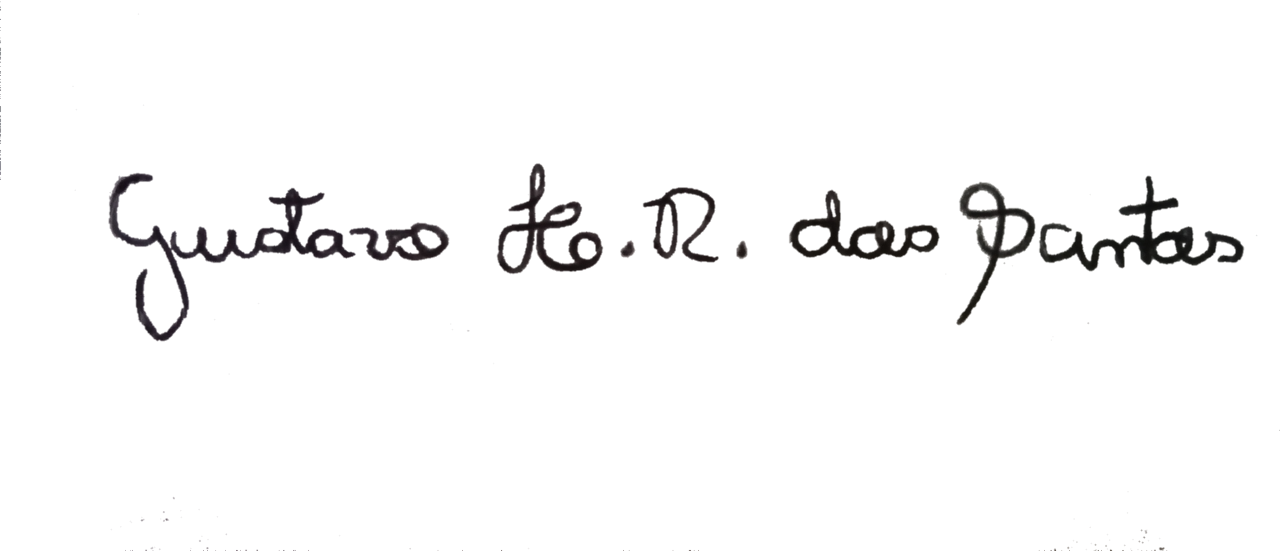 Gustavo H. R. dos Santos